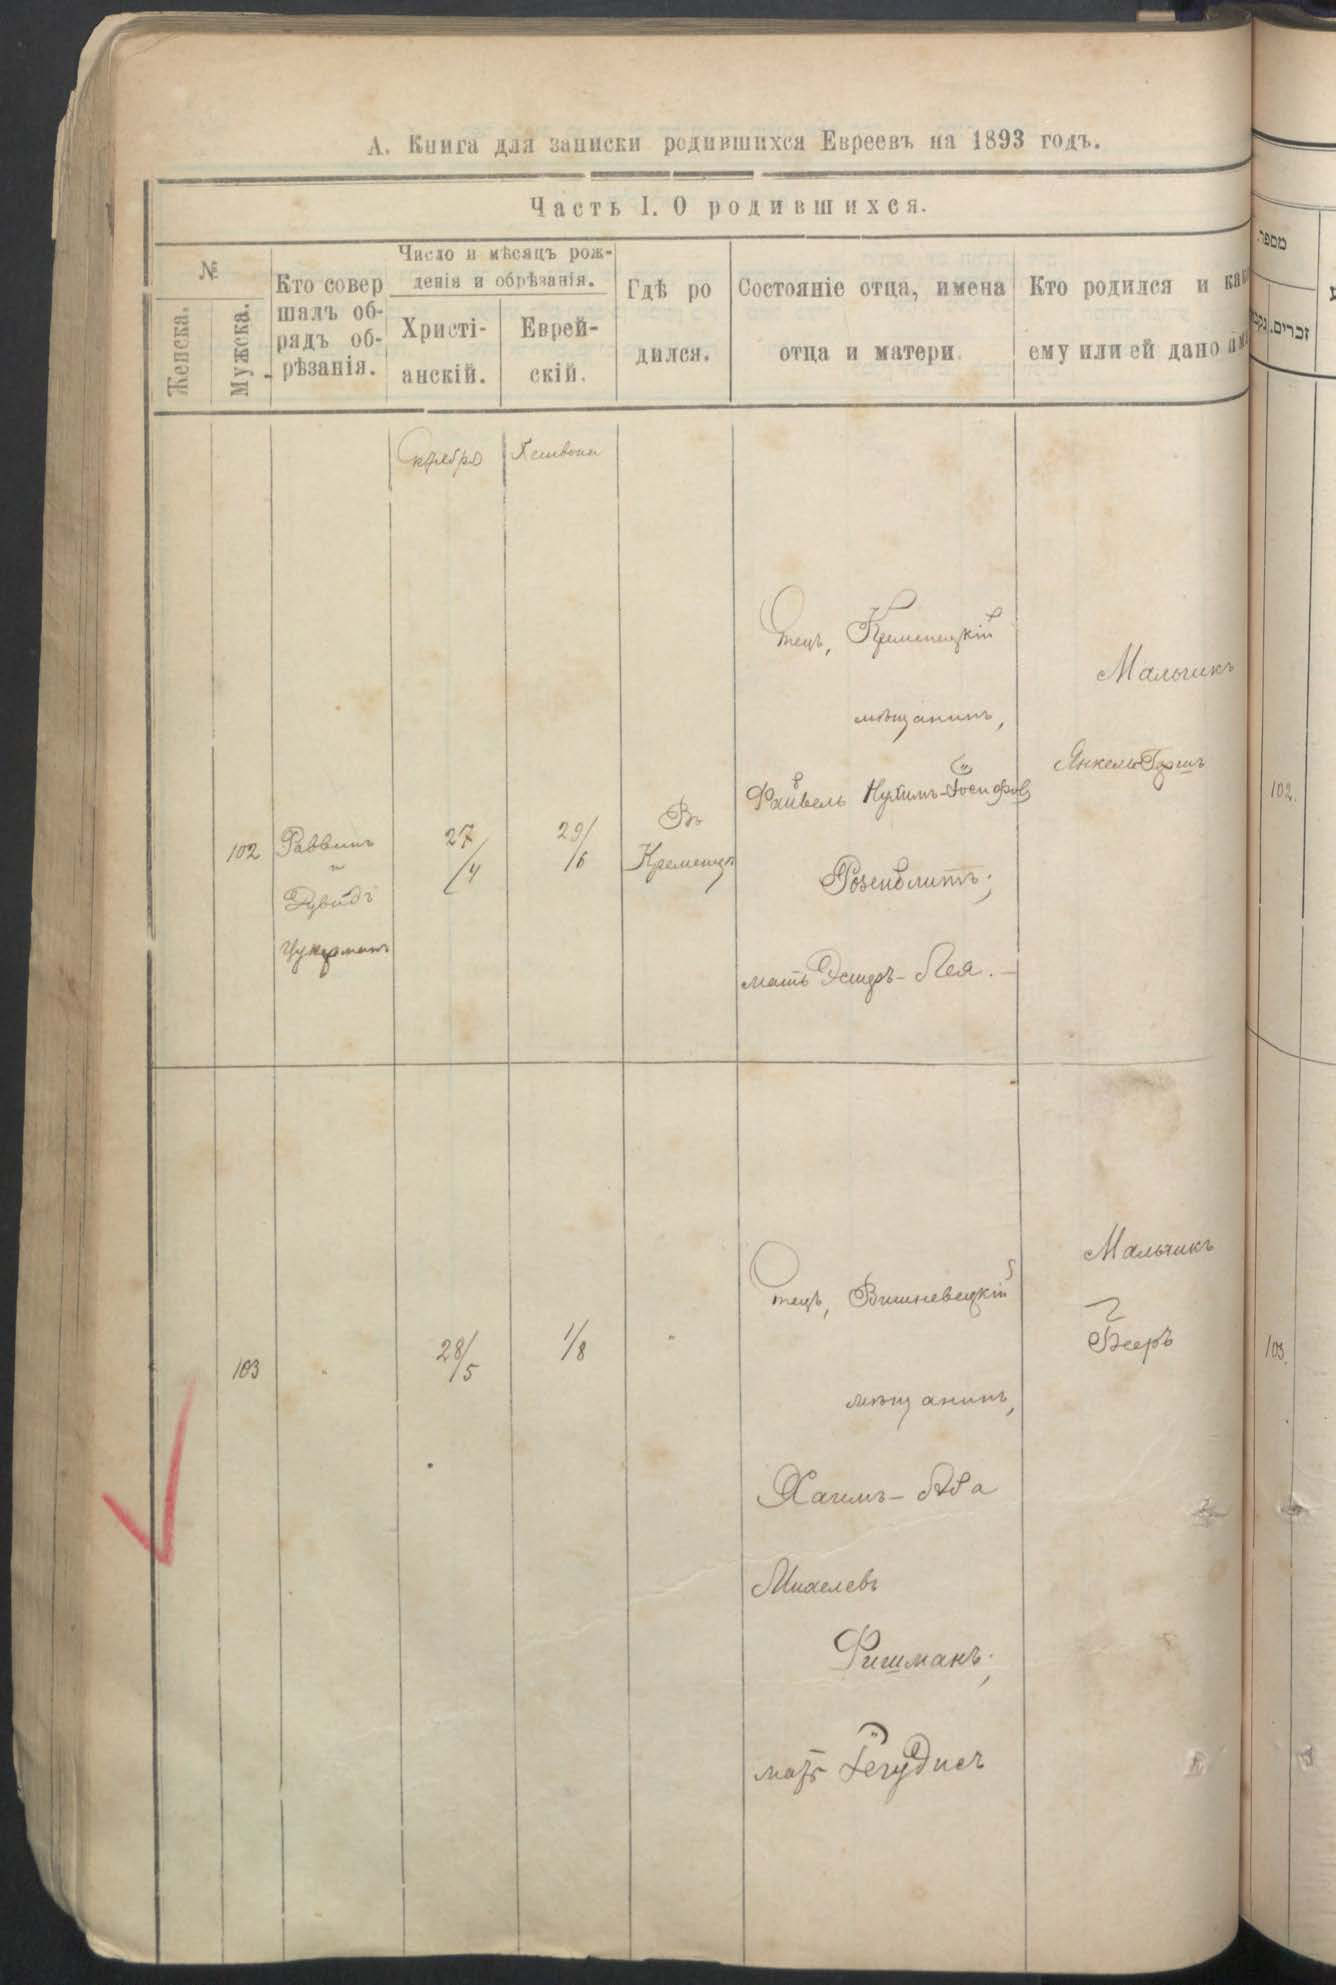 А. Книга для записки родившихся Евреевъ на 1893 годъ.
Часть I. О родившихся.
№
Женска.
Мужска.
Кто совер
шалъ об-
рядъ об-
рѣзанія.
Число и мѣсяцъ рож-
денія и обрѣзанія.
Христі-
анскій.
Еврей-
скій.
Гдѣ ро
дился.
Состояніе отца, имена
отца и матери.
Кто родился и как
ему или ей дано им
Октября
Хешвона
102
Раввинъ
и
Рувидъ
Цукерманъ
27/4
29/6
Въ
Кременцѣ
Отецъ, Кременецкій
мѣщанинъ,
Файвель Нухимъ-Іосифовъ
Розенблитъ;
мать Эстеръ-Лея.—
Мальчикъ
Янкель Гершъ
103
"
28/5
1/8
"
Отецъ, Вишневецкій
мѣщанинъ,
Хаимъ-Аба
Михелевъ
Фишманъ;
мать Іегудисъ
Мальчикъ
Бееръ
מספר
זכרים.
102.
103.